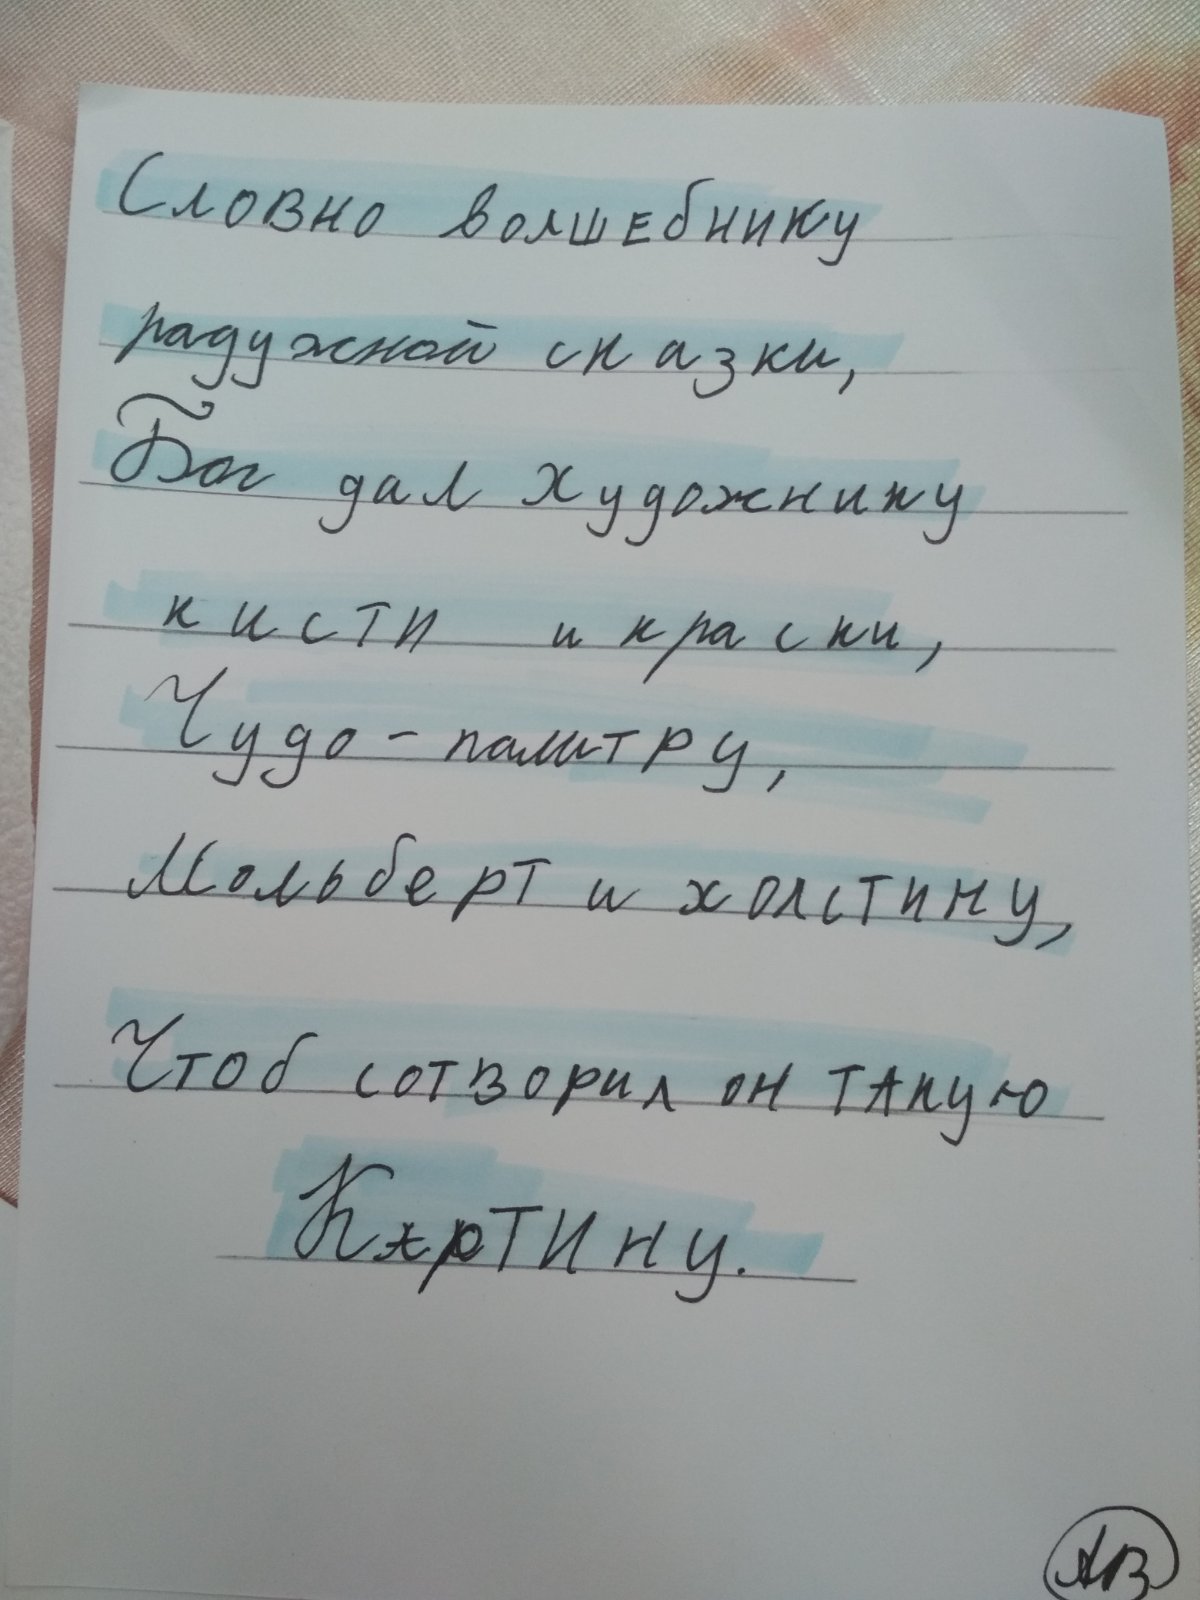 Словно волшебнику
радужной сказки,
Бог дал художнику
кисти и краски,
Чудо - палитру,
Мольберт и холстину,
Чтоб сотворил он такую
Картину.
АВ